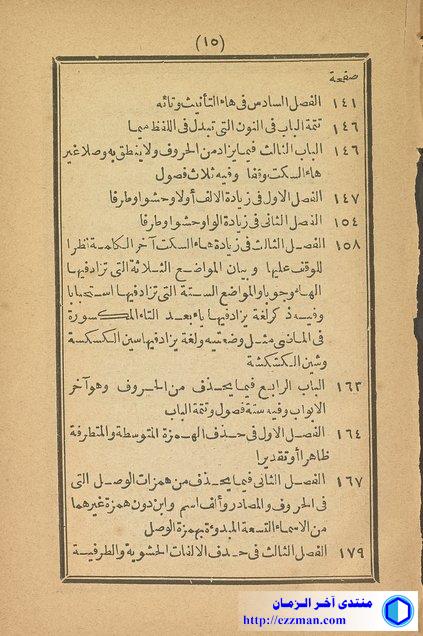 (١٥)
صفحة
١٤١ الفصل السادس فى هاء التأنيث وتائه
١٤٦ تتمة الباب فى النون التى تبدل فى اللفظ ميما
١٤٦ الباب الثالث فيما يزاد من الحروف ولا ينطق به وصلا غير
هاء السكت وقفا وفيه ثلاث فصول
١٤٧ الفصل الاول فى زيادة الالف أولا وحشوا وطرفا
١٥٤ الفصل الثانى فى زيادة الواو حشوا وطرفا
١٥٨ الفصل الثالث فى زيادة هاء السكت آخر الكلمة نظرا
للوقف عليها وبيان المواضع الثلاثة التى تزاد فيها
الهاء وجوبا والمواضع الستة التى تزاد فيها استحبابا
وفيه ذكر لغة يزاد فيها ياء بعد التاء المكسورة
فى الماضى مثل وضعتيه ولغة يزاد فيها سين الكسكسة
وشين الكشكشة
١٦٣ الباب الرابع فيما يحذف من الحروف وهو آخر
الابواب وفيه ستة فصول وتتمة الباب
١٦٤ الفصل الاول فى حذف الهمزة المتوسطة والمتطرفة
ظاهرا أو تقديرا
١٦٧ الفصل الثانى فيما يحذف من همزات الوصل التى
فى الحروف والمصادر وألف اسم وابن دون همزة غيرهما
من الاسماء التسعة المبدوءة بهمزة الوصل
١٧٩ الفصل الثالث فى حذف الالفات الحشوية والطرفية
منتدى آخر الزمان
http://ezzman.com